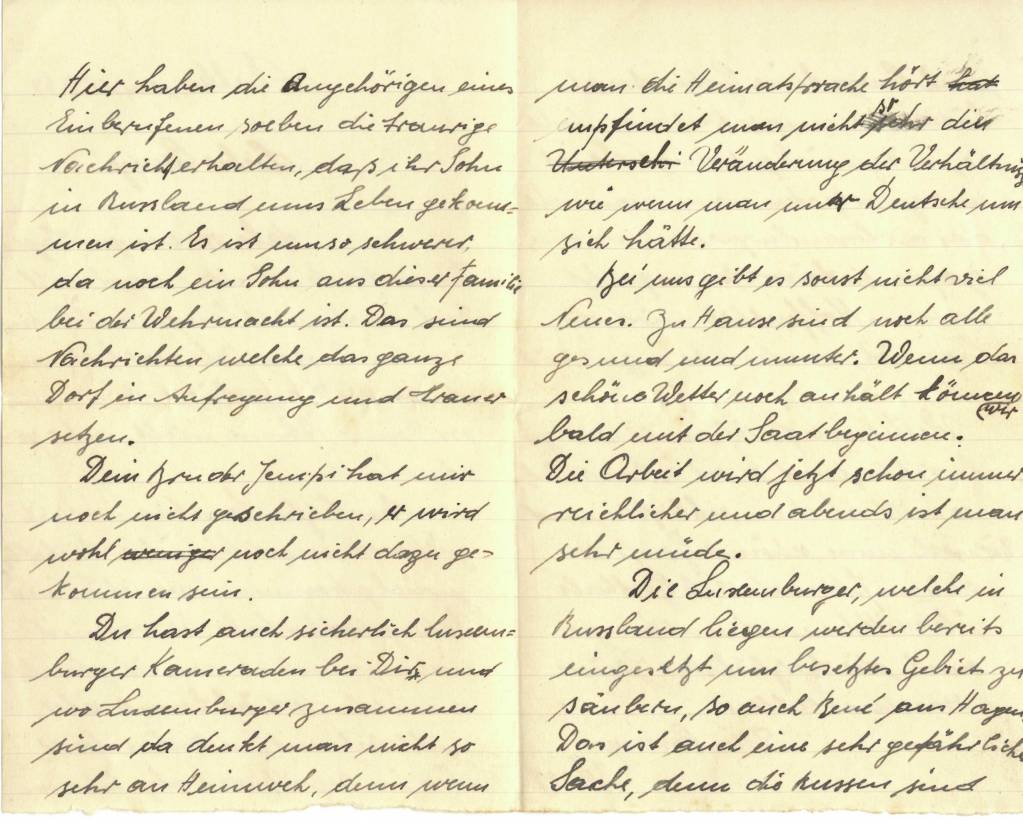 Hier haben die Angehörigen eines
Einberufenen soeben die traurige
Nachricht erhalten, daß ihr Sohn
in Russland ums Leben gekom=
men ist. Es ist umso schwerer,
da noch ein Sohn aus dieser Familie
bei der Wehrmacht ist. Das sind
Nachrichten welche das ganze
Dorf in Aufregung und Trauer
setzen.
Dein Bruder Jempi hat mir
noch nicht geschrieben, er wird
wohl weniger noch nicht dazu ge=
kommen sein.
Du hast auch sicherlich luxem=
burger Kameraden bei Dir, und
wo Luxemburger zusammen
sind da denkt man nicht so
sehr an Heimweh, denn wenn
man die Heimatsprache hört hat
empfindet man nicht so sehr die
Unterschi Veränderung der Verhältniss
wie wenn man unter Deutsche um
sich hätte.
Bei uns gibt es sonst nicht viel
Neues. Zu Hause sind noch alle
gesund und munter. Wenn das
schöne Wetter noch anhält können
wir
bald mit der Saat beginnen.
Die Arbeit wird jetzt schon immer
reichlicher und abends ist man
sehr müde.
Die Luxemburger, welche in
Russland liegen werden bereits
eingesetzt um besetztes Gebiet zu
säubern, so auch René aus Hagen
Das ist auch eine sehr gefährliche
Sache, denn die Russen sind